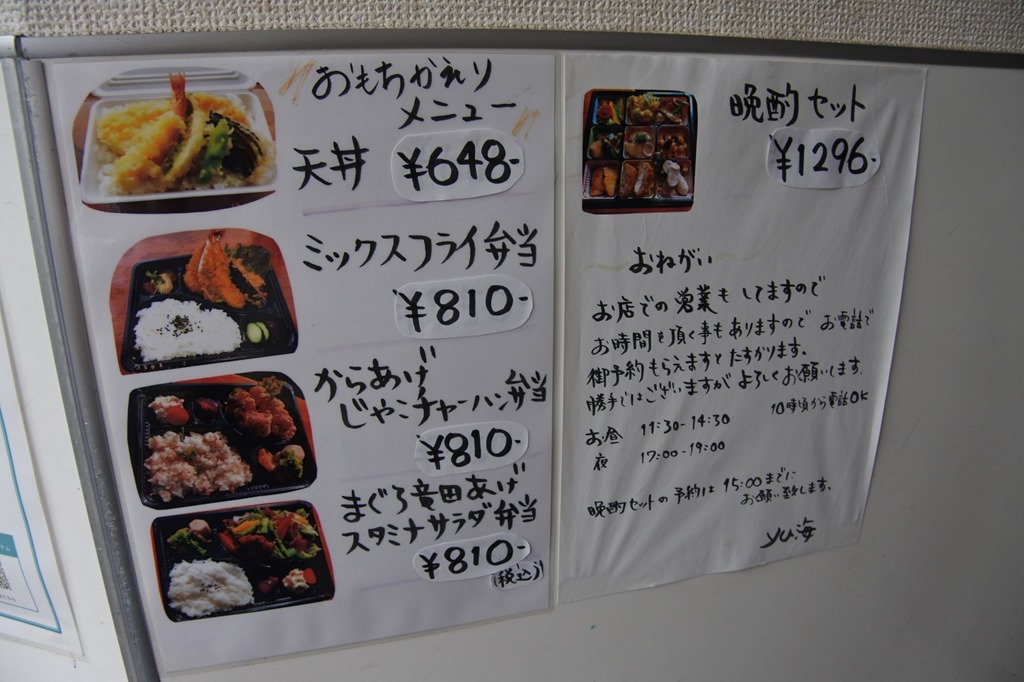 おもちかえり
メニュー
天丼 ¥648-
ミックスフライ弁当
¥810-
からあげ
じゃこチャーハン弁当
¥810-
まぐろ竜田あげ
スタミナサラダ弁当
¥810-
(税込)
晩酌セット
¥1296-
おねがい
お店での営業もしてますので
お時間を頂く事もありますので お電話で
御予約もらえますとたすかります。
勝手ではございますがよろしくお願いします。
10時頃から電話OK
お昼 11:30-14:30
夜 17:00-19:00
晩酌セットの予約は 15:00までに
お願い致します。
yu海